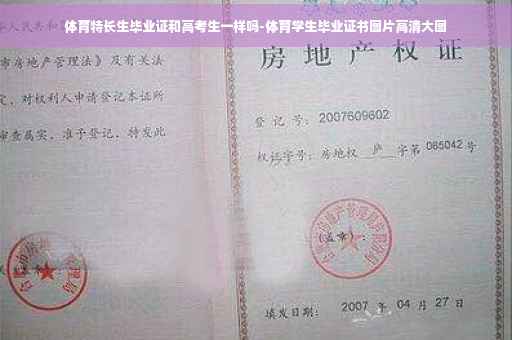 体育特长生毕业证和高考生一样吗-体育学生毕业证书图片高清大图
市房地产管理法》及有关法
定，对权利人申请登记本证所
审查属实，准予登记，特发此
房地产权证
登记号：2007609602
权证字号：房地权 庐 字第 085042 号
(盖章)：
填发日期：2007 年 04 月 27 日